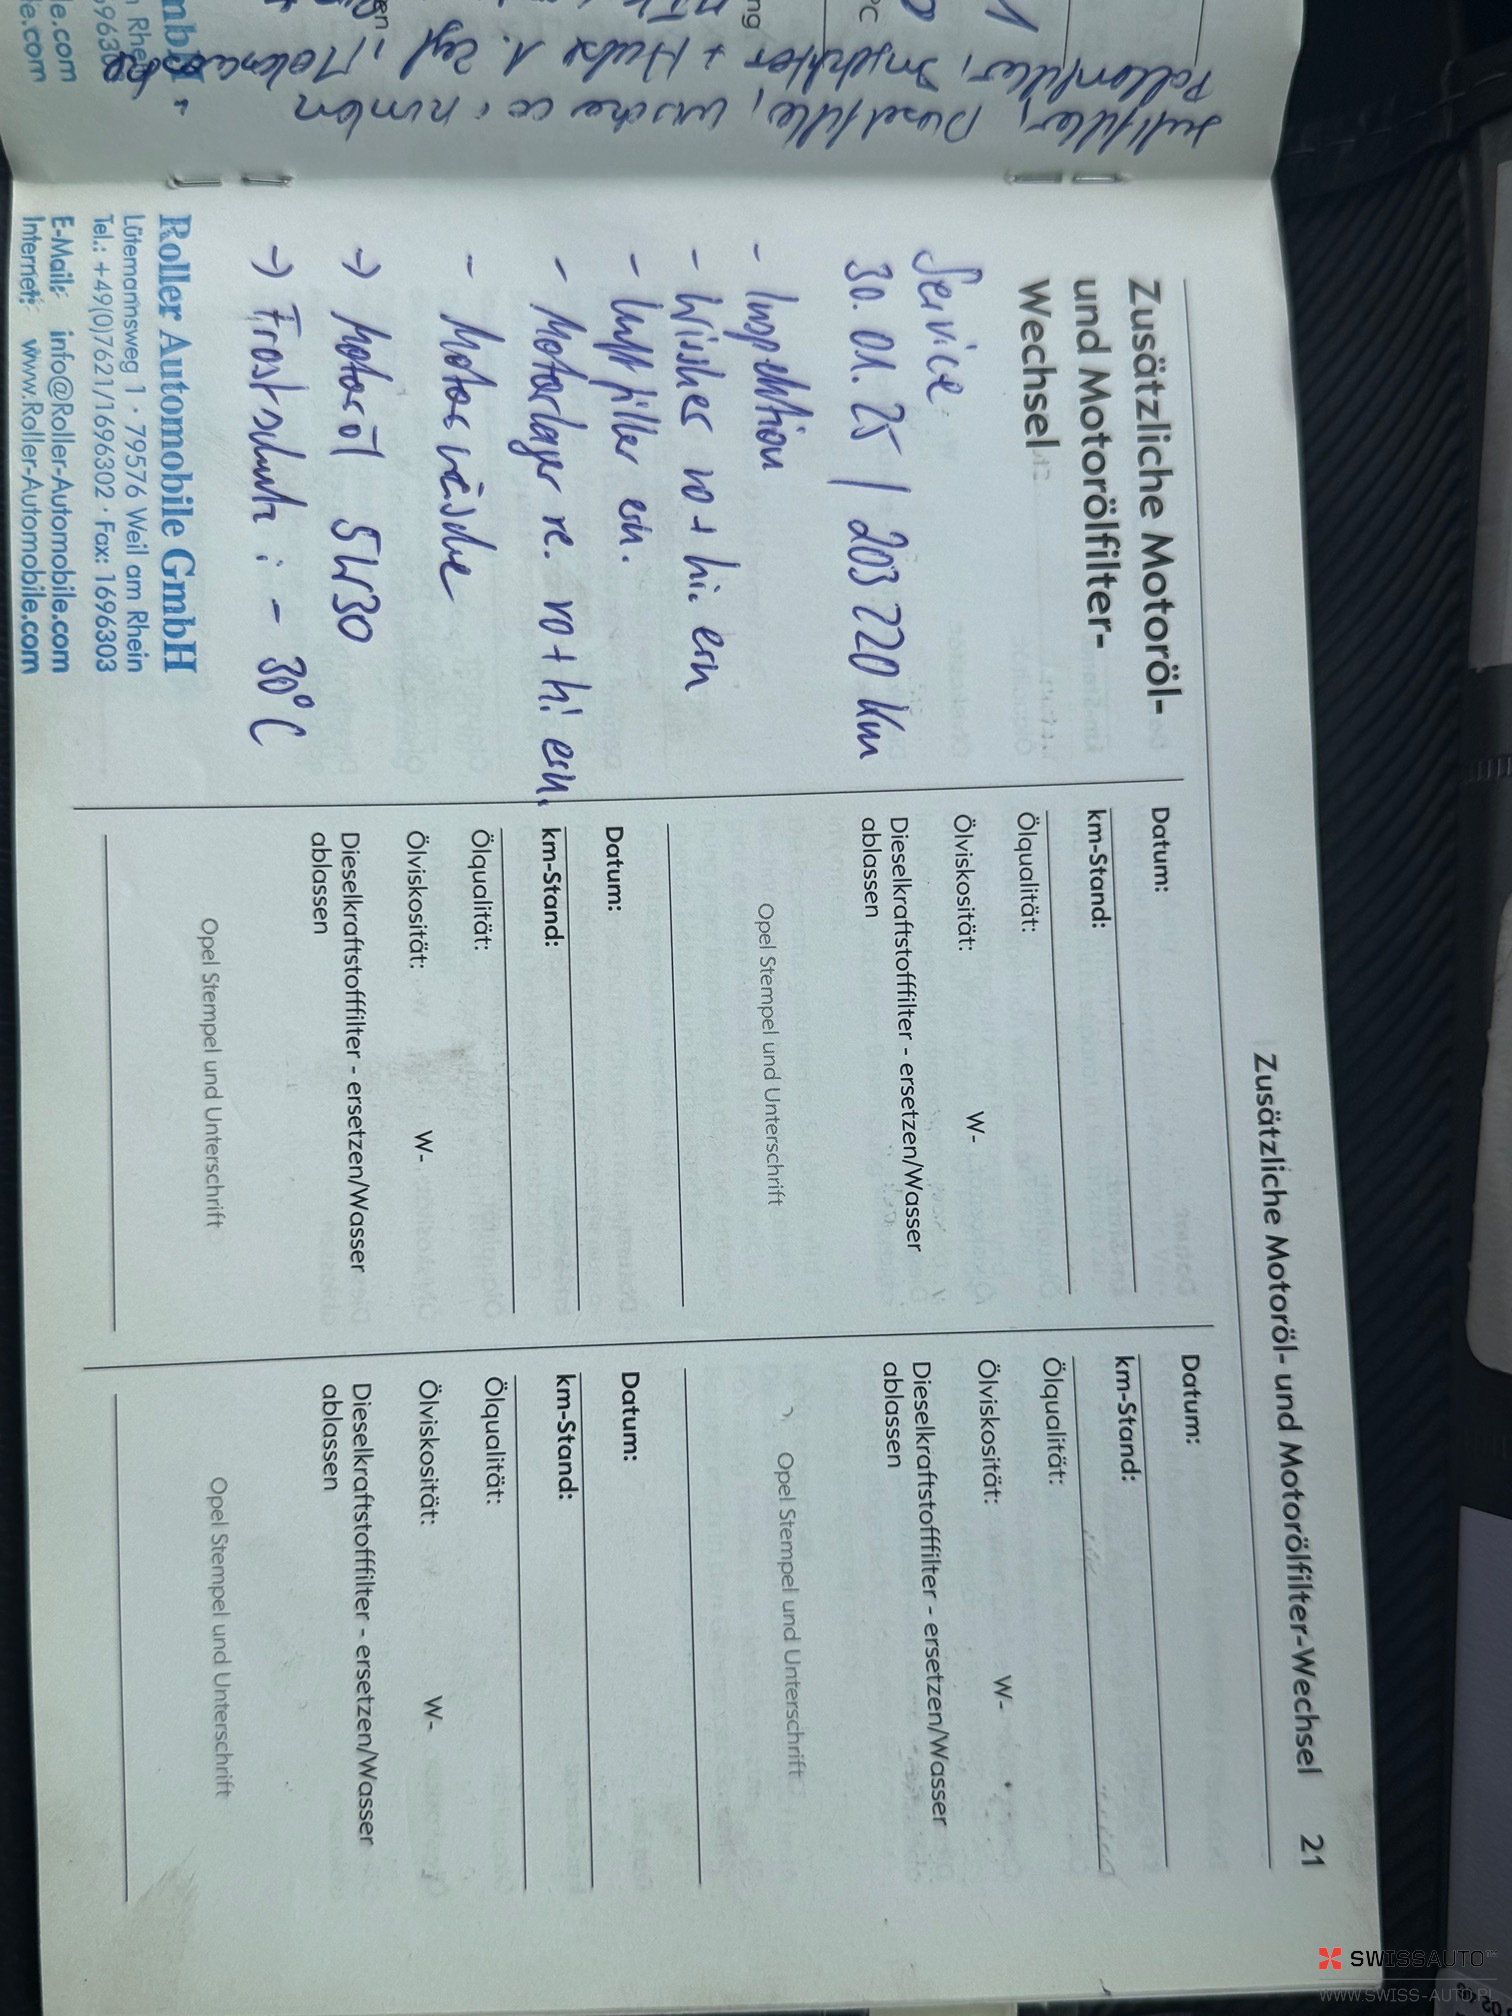 Luftfilter, Dieselfilter, wische
Pollenfilter, Injektor + 1. Zyl, Motorwäsche
Zusätzliche Motoröl- und Motorölfilter-Wechsel 21
Zusätzliche Motoröl-
und Motorölfilter-
Wechsel
Service
30.01.25 / 203 220 km
- Inspektion
- Wischer vo + hi. ern
- Luftfilter ern.
- Motorlager re. vo + hi ern.
- Motorwäsche
→ Motoröl 5W30
→ Frostschutz : -30°C
Roller Automobile GmbH
Lütemannsweg 1 · 79576 Weil am Rhein
Tel.: +49(0)7621/1696302 · Fax: 1696303
E-Mail: info@Roller-Automobile.com
Internet: www.Roller-Automobile.com
Datum:
km-Stand:
Ölqualität:
Ölviskosität: W-
Dieselkraftstofffilter - ersetzen/Wasser
ablassen
Opel Stempel und Unterschrift
Datum:
km-Stand:
Ölqualität:
Ölviskosität: W-
Dieselkraftstofffilter - ersetzen/Wasser
ablassen
Opel Stempel und Unterschrift
Datum:
km-Stand:
Ölqualität:
Ölviskosität: W-
Dieselkraftstofffilter - ersetzen/Wasser
ablassen
Opel Stempel und Unterschrift
Datum:
km-Stand:
Ölqualität:
Ölviskosität: W-
Dieselkraftstofffilter - ersetzen/Wasser
ablassen
Opel Stempel und Unterschrift
SWISSAUTO
WWW.SWISS-AUTO.PL